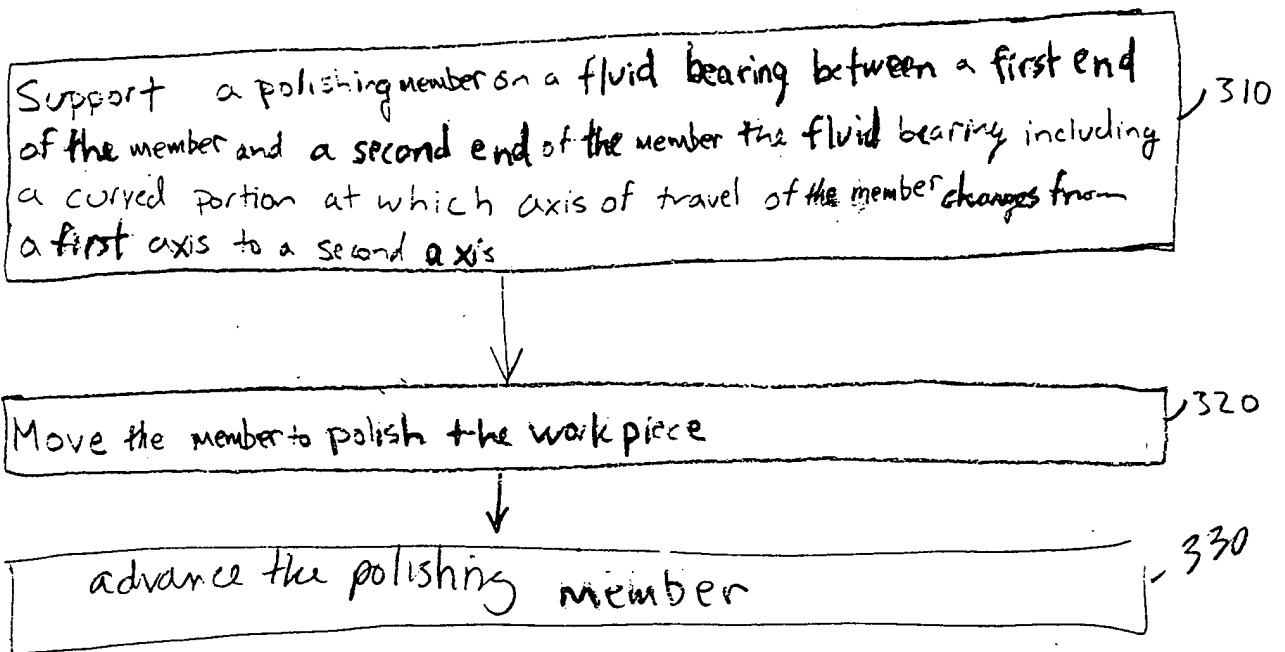 Support a polishing member on a fluid bearing between a first end
310
of the member and a second end of the member the fluid bearing including
a curved portion at which axis of travel of the member changes from
a first axis to a second axis
Move the member to polish the workpiece
320
advance the polishing member
330